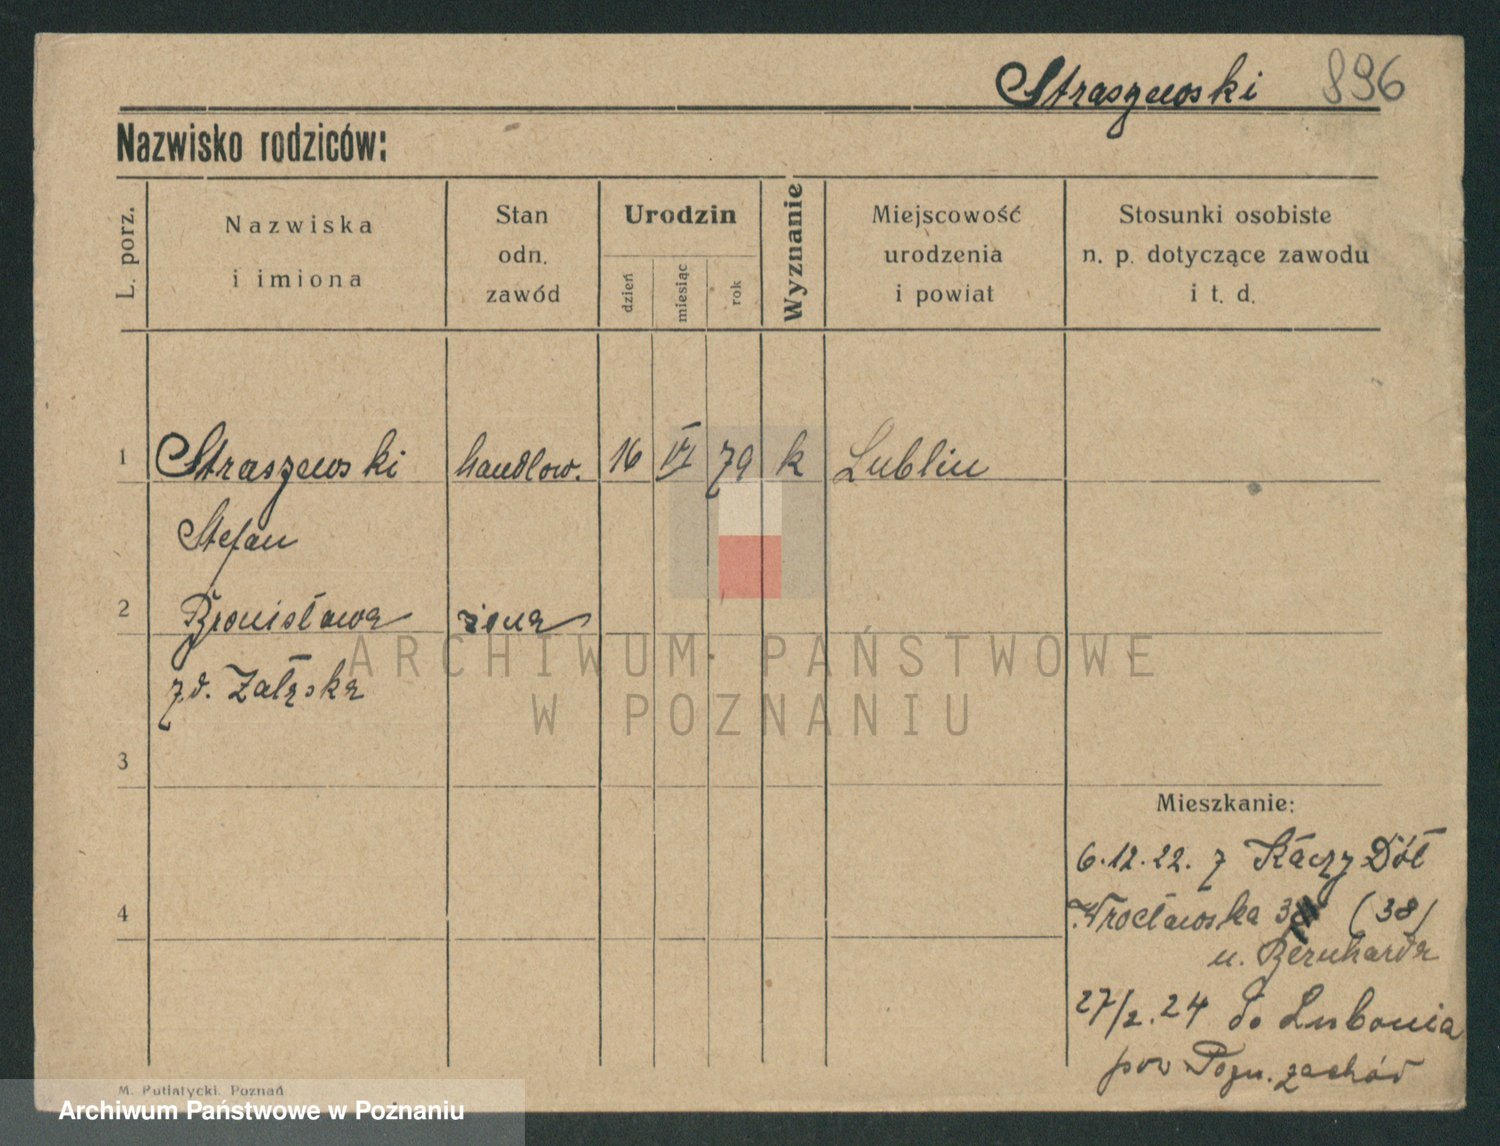 Straszewski 896
Nazwisko rodziców:
L. porz.
Nazwiska
i imiona
Stan
odn.
zawód
Urodzin
dzień
miesiąc
rok
Wyznanie
Miejscowość
urodzenia
i powiat
Stosunki osobiste
n. p. dotyczące zawodu
i t. d.
1 Straszewski handlow. 16 VI 79 k Lublin
Stefan
2 Bronisława żona
z d. Załęska
ARCHIWUM PAŃSTWOWE
W POZNANIU
3
Mieszkanie:
6.12.22. z Kaczy Dół
4 Wrocławska (38)
u. Bernharda
27/2.24 do Lubonia
pow Pozn. zachód
M. Putiatycki, Poznań
Archiwum Państwowe w Poznaniu